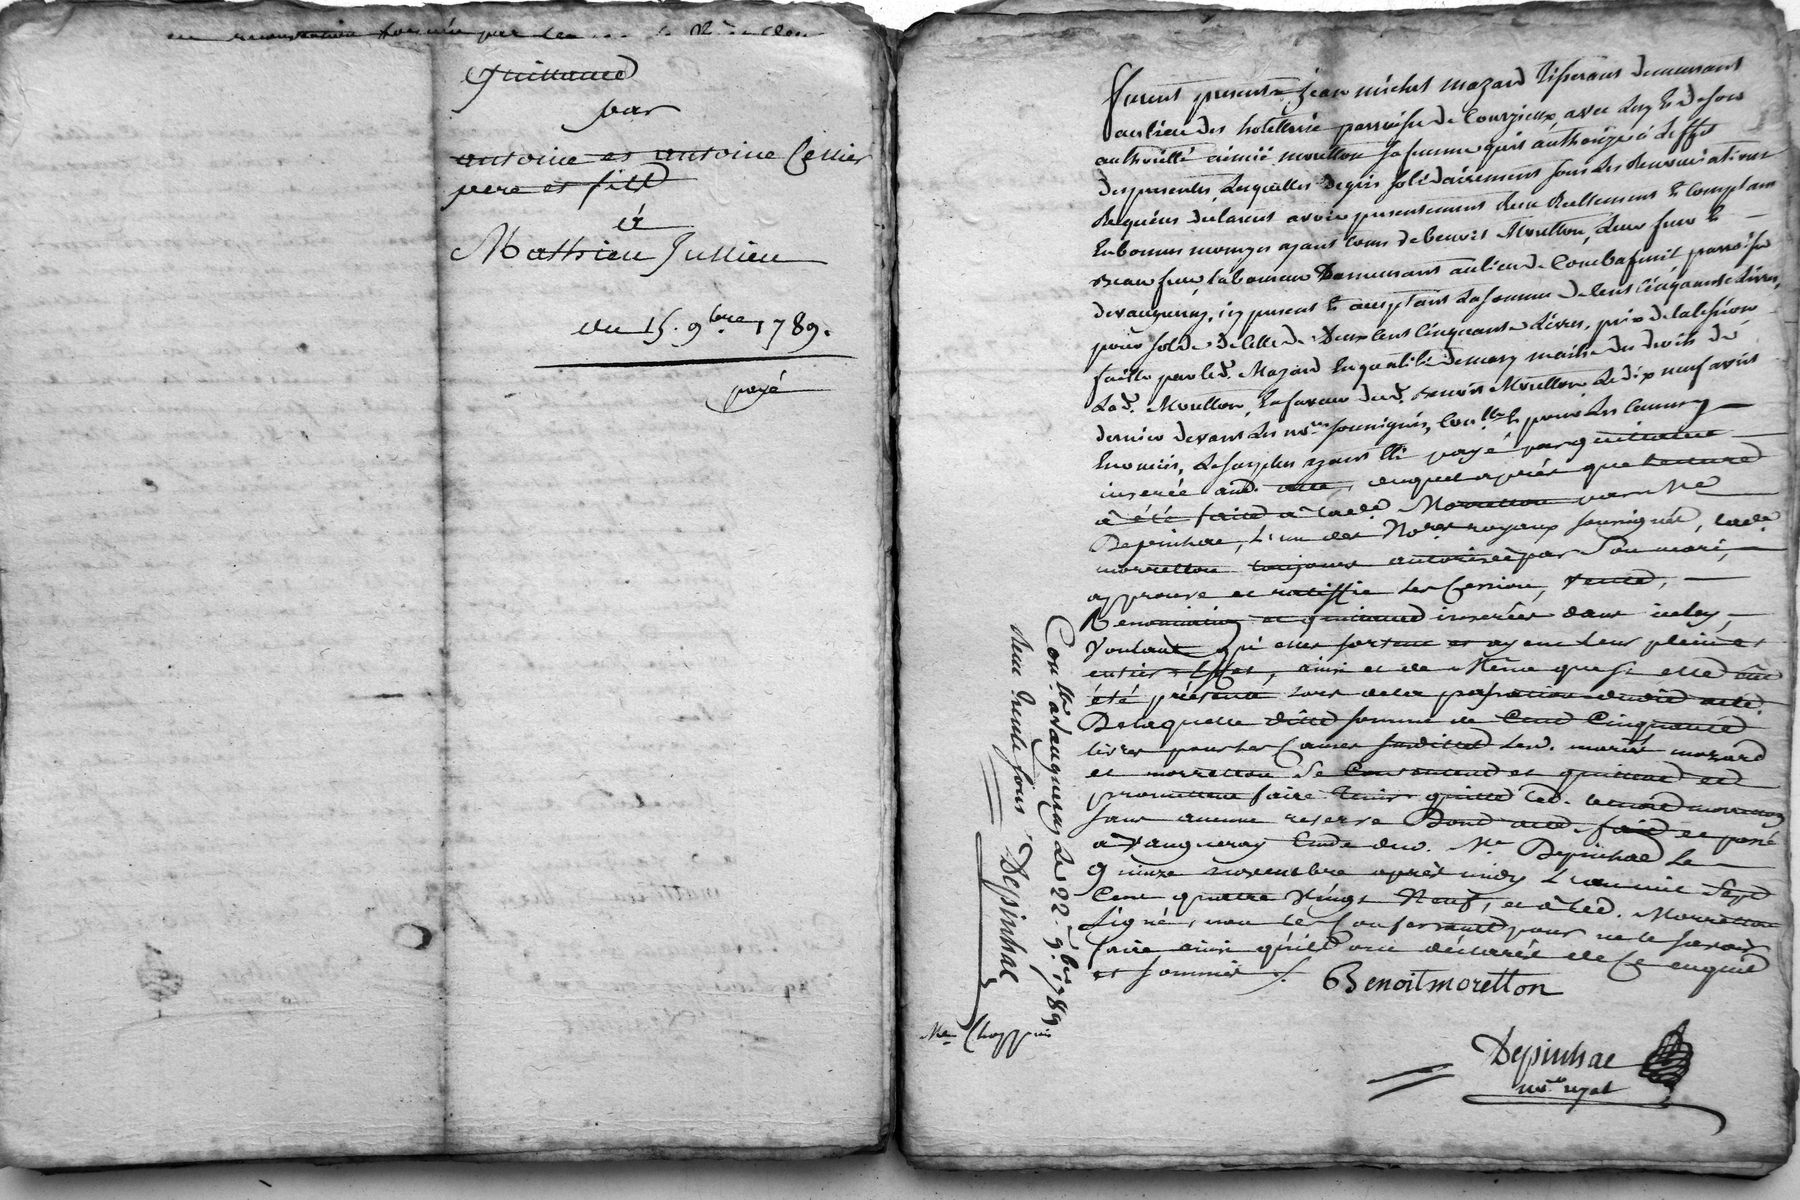 Quittance
par
antoine et antoine Cellier
pere et fils
à
Mathieu Jullien
du 15. 9bre 1789.
payé
furent presents jean michel mazard tisserant demeurant
au lieu des hotellerie parroisse de Courzieux, avec luy et de son
authorité aimée moretton sa femme quil authorize à leffet
des presentes Lesquelles de gré solidairement sous les renonciations
requises déclarent avoir presentement reçu reellement et comptant
en bonnes monoyes ayant cours de benoit Moretton, leur frere et
beau frere laboureur demeurant au lieu de Combafinit parroisse
de vaugneray, icy present et acceptant la somme de Cent Cinquante Livres,
pour solde de celle de deux Cent Cinquante Livres, prix de la Cession
faitte par led. Mazard en qualité de mary maitre des droits de
Lad. Moretton, en faveur dud. Benoit Moretton le dix neuf avril
dernier devant les nres soussignés, Conllé et pour les causes y
enoncées, Le surplus ayant été payé par quittance
inserée aud. acte, duquel après que lecture
a été faite à lade. Moretton par Me
Depinhac, L'un des Nores royaux soussignés, lade.
morretton toujours autorisée par Son mari,
approuve et ratiffie les Cession, vente,
Renonciation et quittance inserées dans icelui,
Voulant qu'elles sortent et ayent leur plein et
entier effet, ainsi et de Même que si elle eut
été présente lors de la passation dudit acte.
De laquelle dite somme de Cent Cinquante
livres pour les Causes susdittes Lesd. mariés mazard
et morretton Se Contentent et quittent et
promettent faire tenir quitte led. benoit moretton
sans aucune reserve Dont acte fait et passé
à Vaugneray Etude dud. Me Depinhac Le
quinze novembre après midy L'an mil Sept
Cent quatre Vingt Neuf, et a led. Morretton
Signé, non les Confessants pour ne le savoir
faire ainsi qu'ils ont déclaré de Ce enquis
et sommés ./.
Benoitmoretton
Depinhac
nre royal
Conllé à Vaugneray Le 22. 9bre 1789
Reçu trente sous Depinhac
Me Choppin